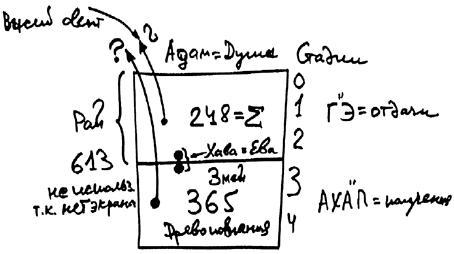 Высший свет
?
?
Адам = Душа
Стадии
0
1
2
3
4
Рай
248 = Σ
Г"Э = отдачи
Хава = Ева
613
не использ.
т.к. нет экрана
Змей
365
Древо познания
АХА"П = получения